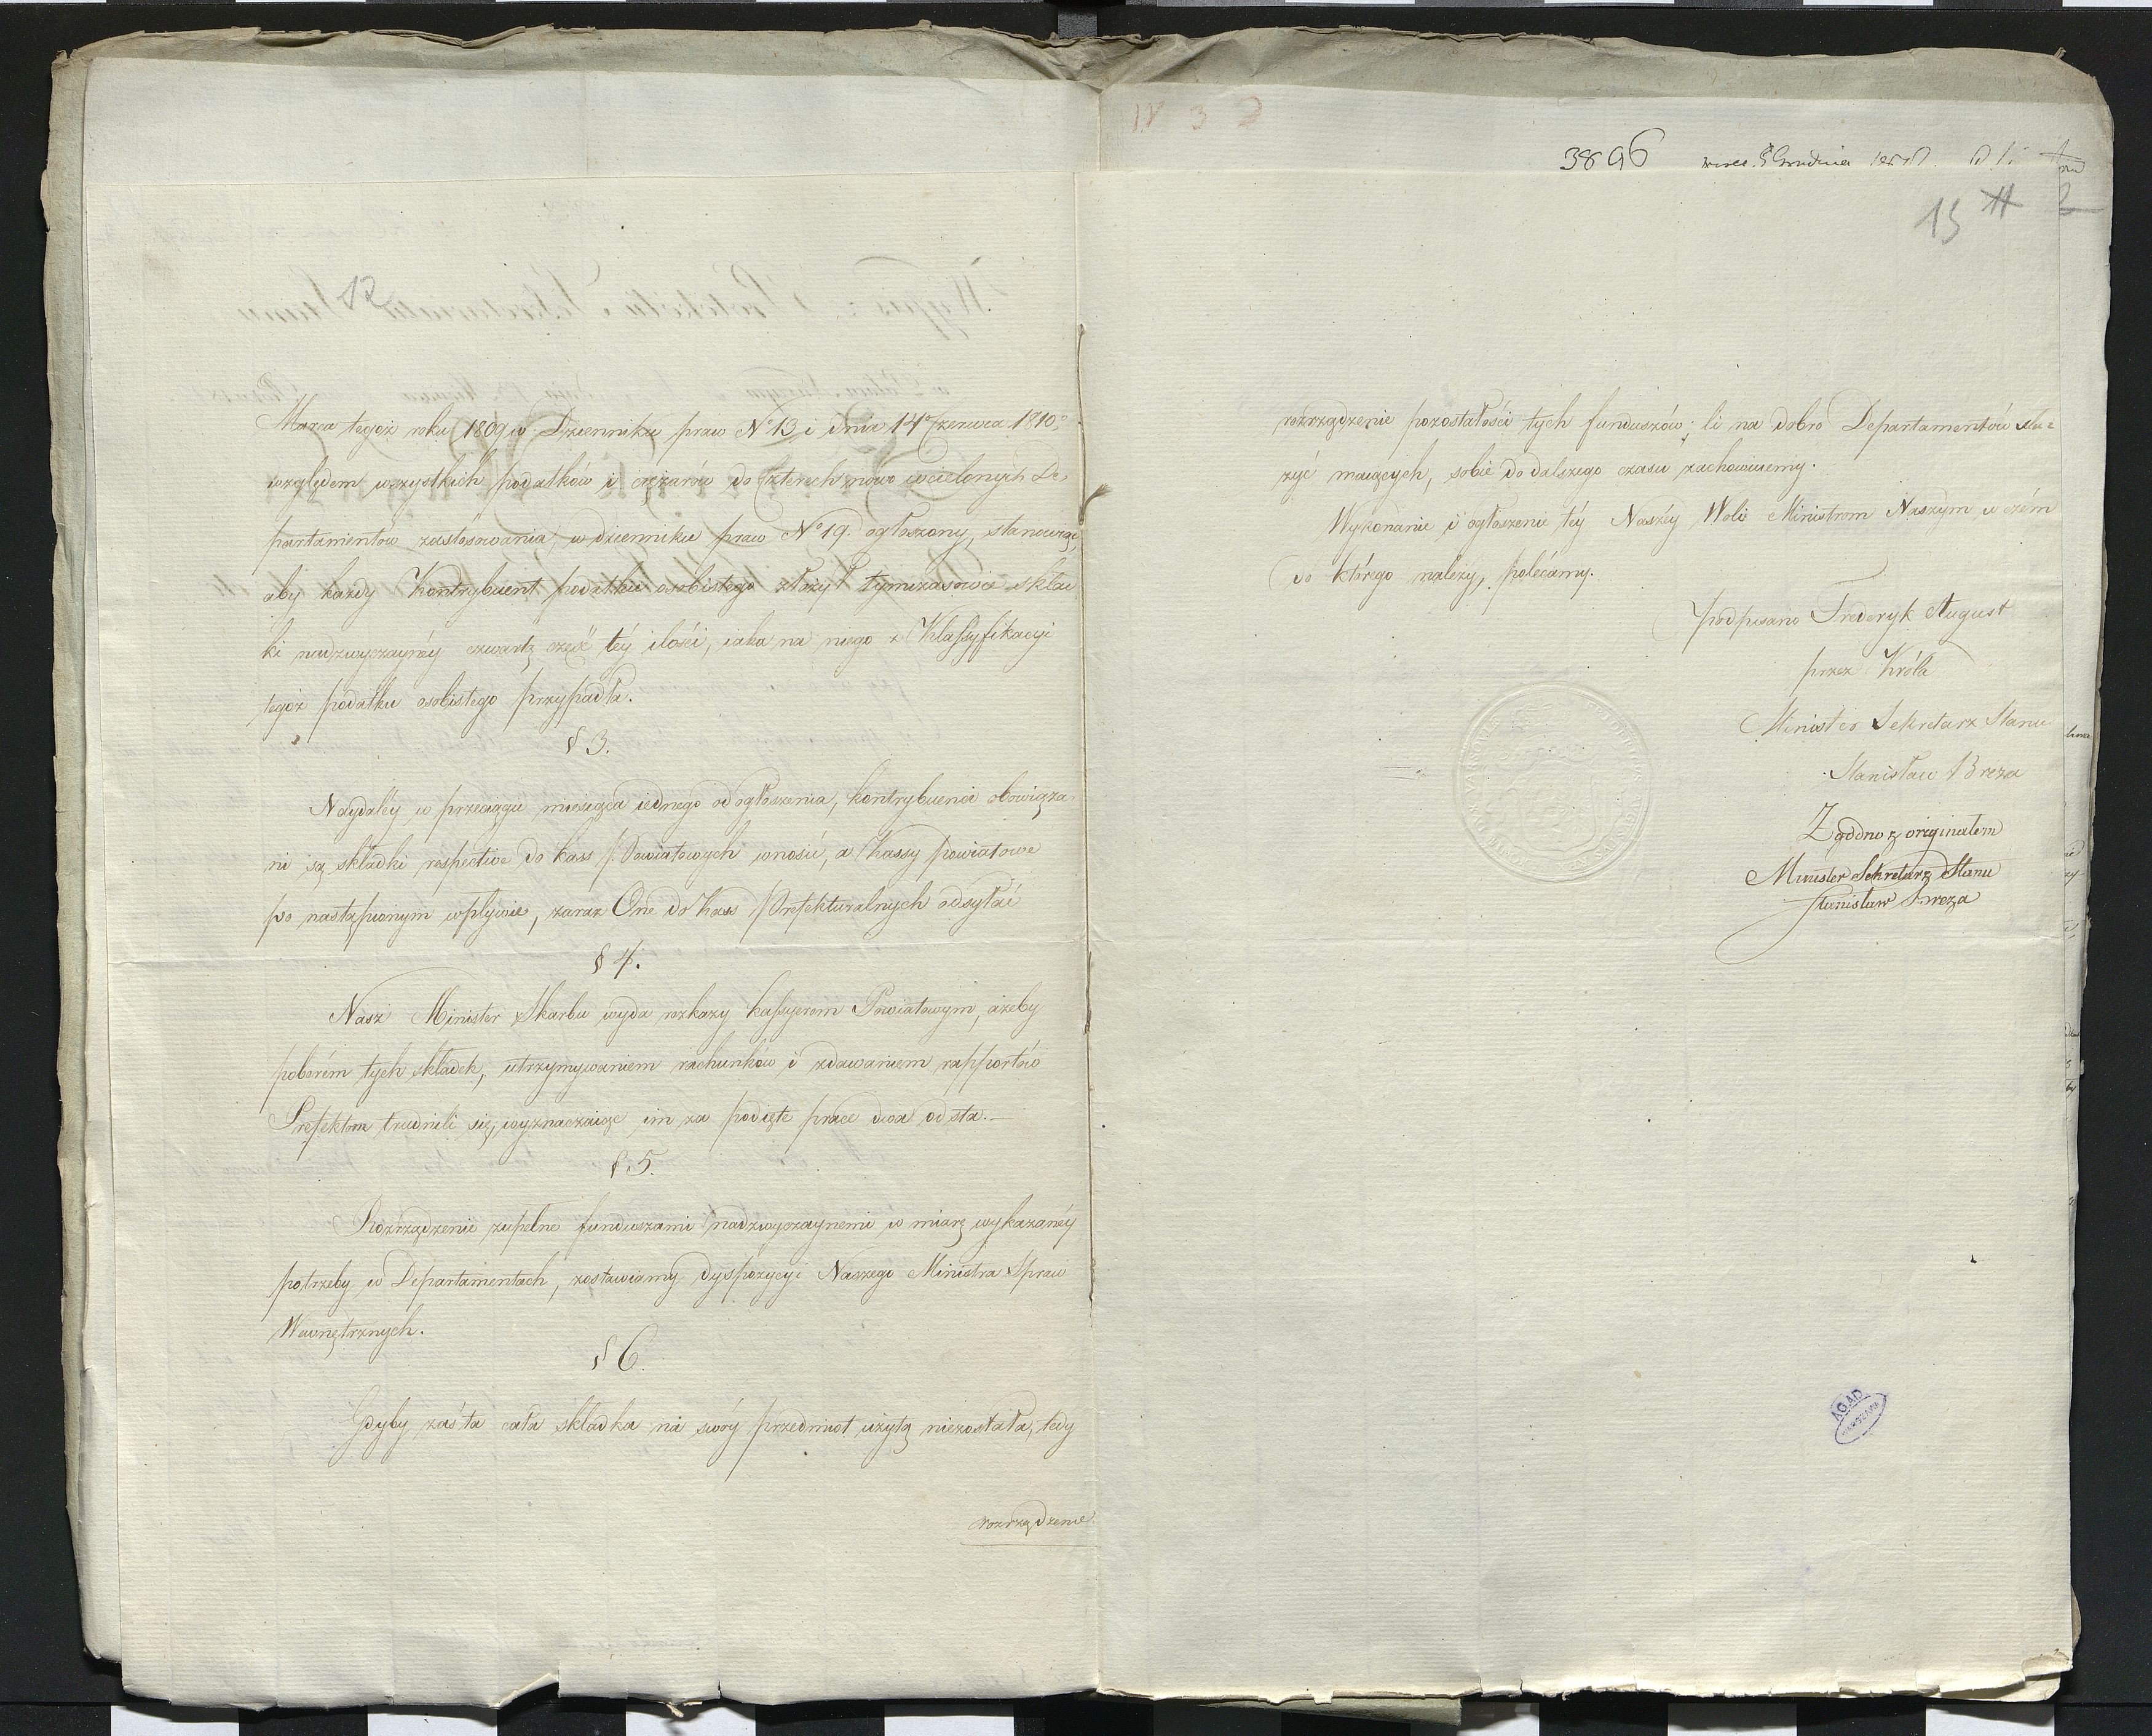 12
Marca tegoż roku 1809 w Dzienniku praw No 13 i dnia 14 Czerwca 1810o
względem wszystkich podatków i ciężarów do czterech nowo wcielonych De-
partamentów zastósowania, w dzienniku praw No 19. ogłoszony, stanowią,
aby każdy Kontrybuent podatku osobistego złożył tymczasowie skład
ki nadzwyczaynéy czwartą część téy ilości, iaka na niego z Klassyfikacyi
tegoż podatku osobistego przypadła.
§ 3.
Naydaléy w przeciągu miesiąca iednego od ogłoszenia, kontrybuenci obowiąza
ni są składki respective do kass Powiatowych wnosić, a Kassy powiatowe
po nastąpionym wpływie, zaraz One do Kass Prefekturalnych odsyłać
§ 4.
Nasz Minister Skarbu wyda rozkazy kassyerom Powiatowym, ażeby
poborém tych składek, utrzymywaniem rachunków i zdawaniem rapportów
Prefektom trudnili się, wyznaczaiąc im za podięte prace dwa od sta.
§ 5.
Rozrządzenie zupełne funduszami nadzwyczaynemi w miarę wykazanéy
potrzeby w Departamentach, zostawiamy dyspozycyi Naszego Ministra Spraw
Wewnętrznych.
§ 6.
Gdyby zaś ta cała składka na swóy przedmiot użytą niezostała, tedy
rozrządzenie
IV 3
3896 Grudnia
15 11
rozrządzenie pozostałości tych funduszów; li na dobro Departamentów słu-
żyć maiących, sobie do dalszego czasu zachowuiemy.
Wykonanie i ogłoszenie téy Naszéy Woli Ministrom Naszym w czém
do którego należy, polécamy.
podpisano Frederyk August
przez Króla
Minister Sekretarz Stanu
Stanisław Breza
Zgodno z originalem
Minister Sekretarz Stanu
Stanisław Breza
AGAD
WARSZAWA